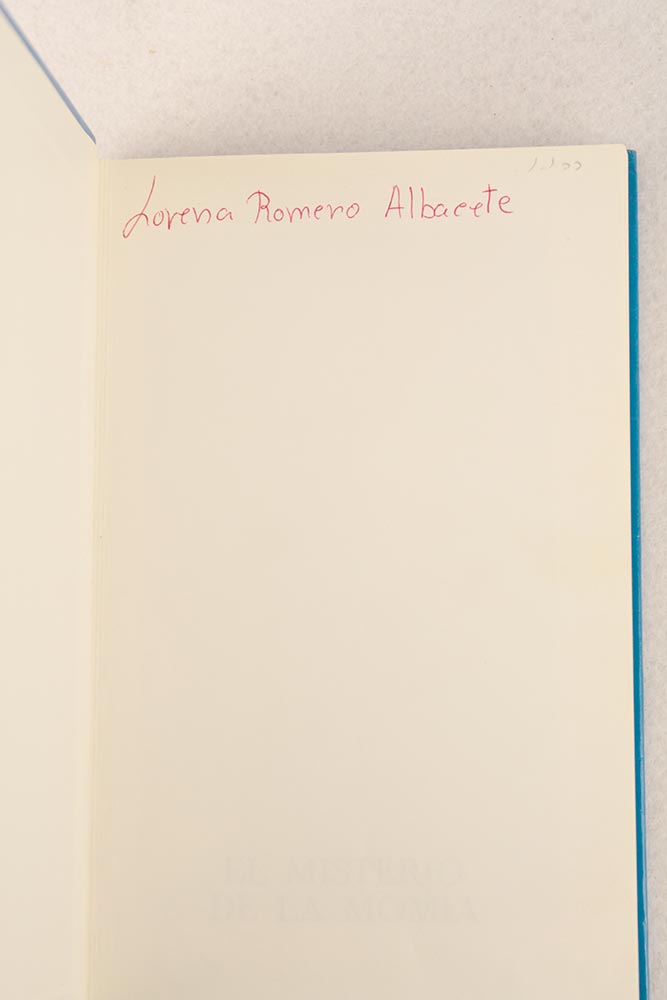 Lorena Romero Albacete
EL MISTERIO
DE LA MOMIA